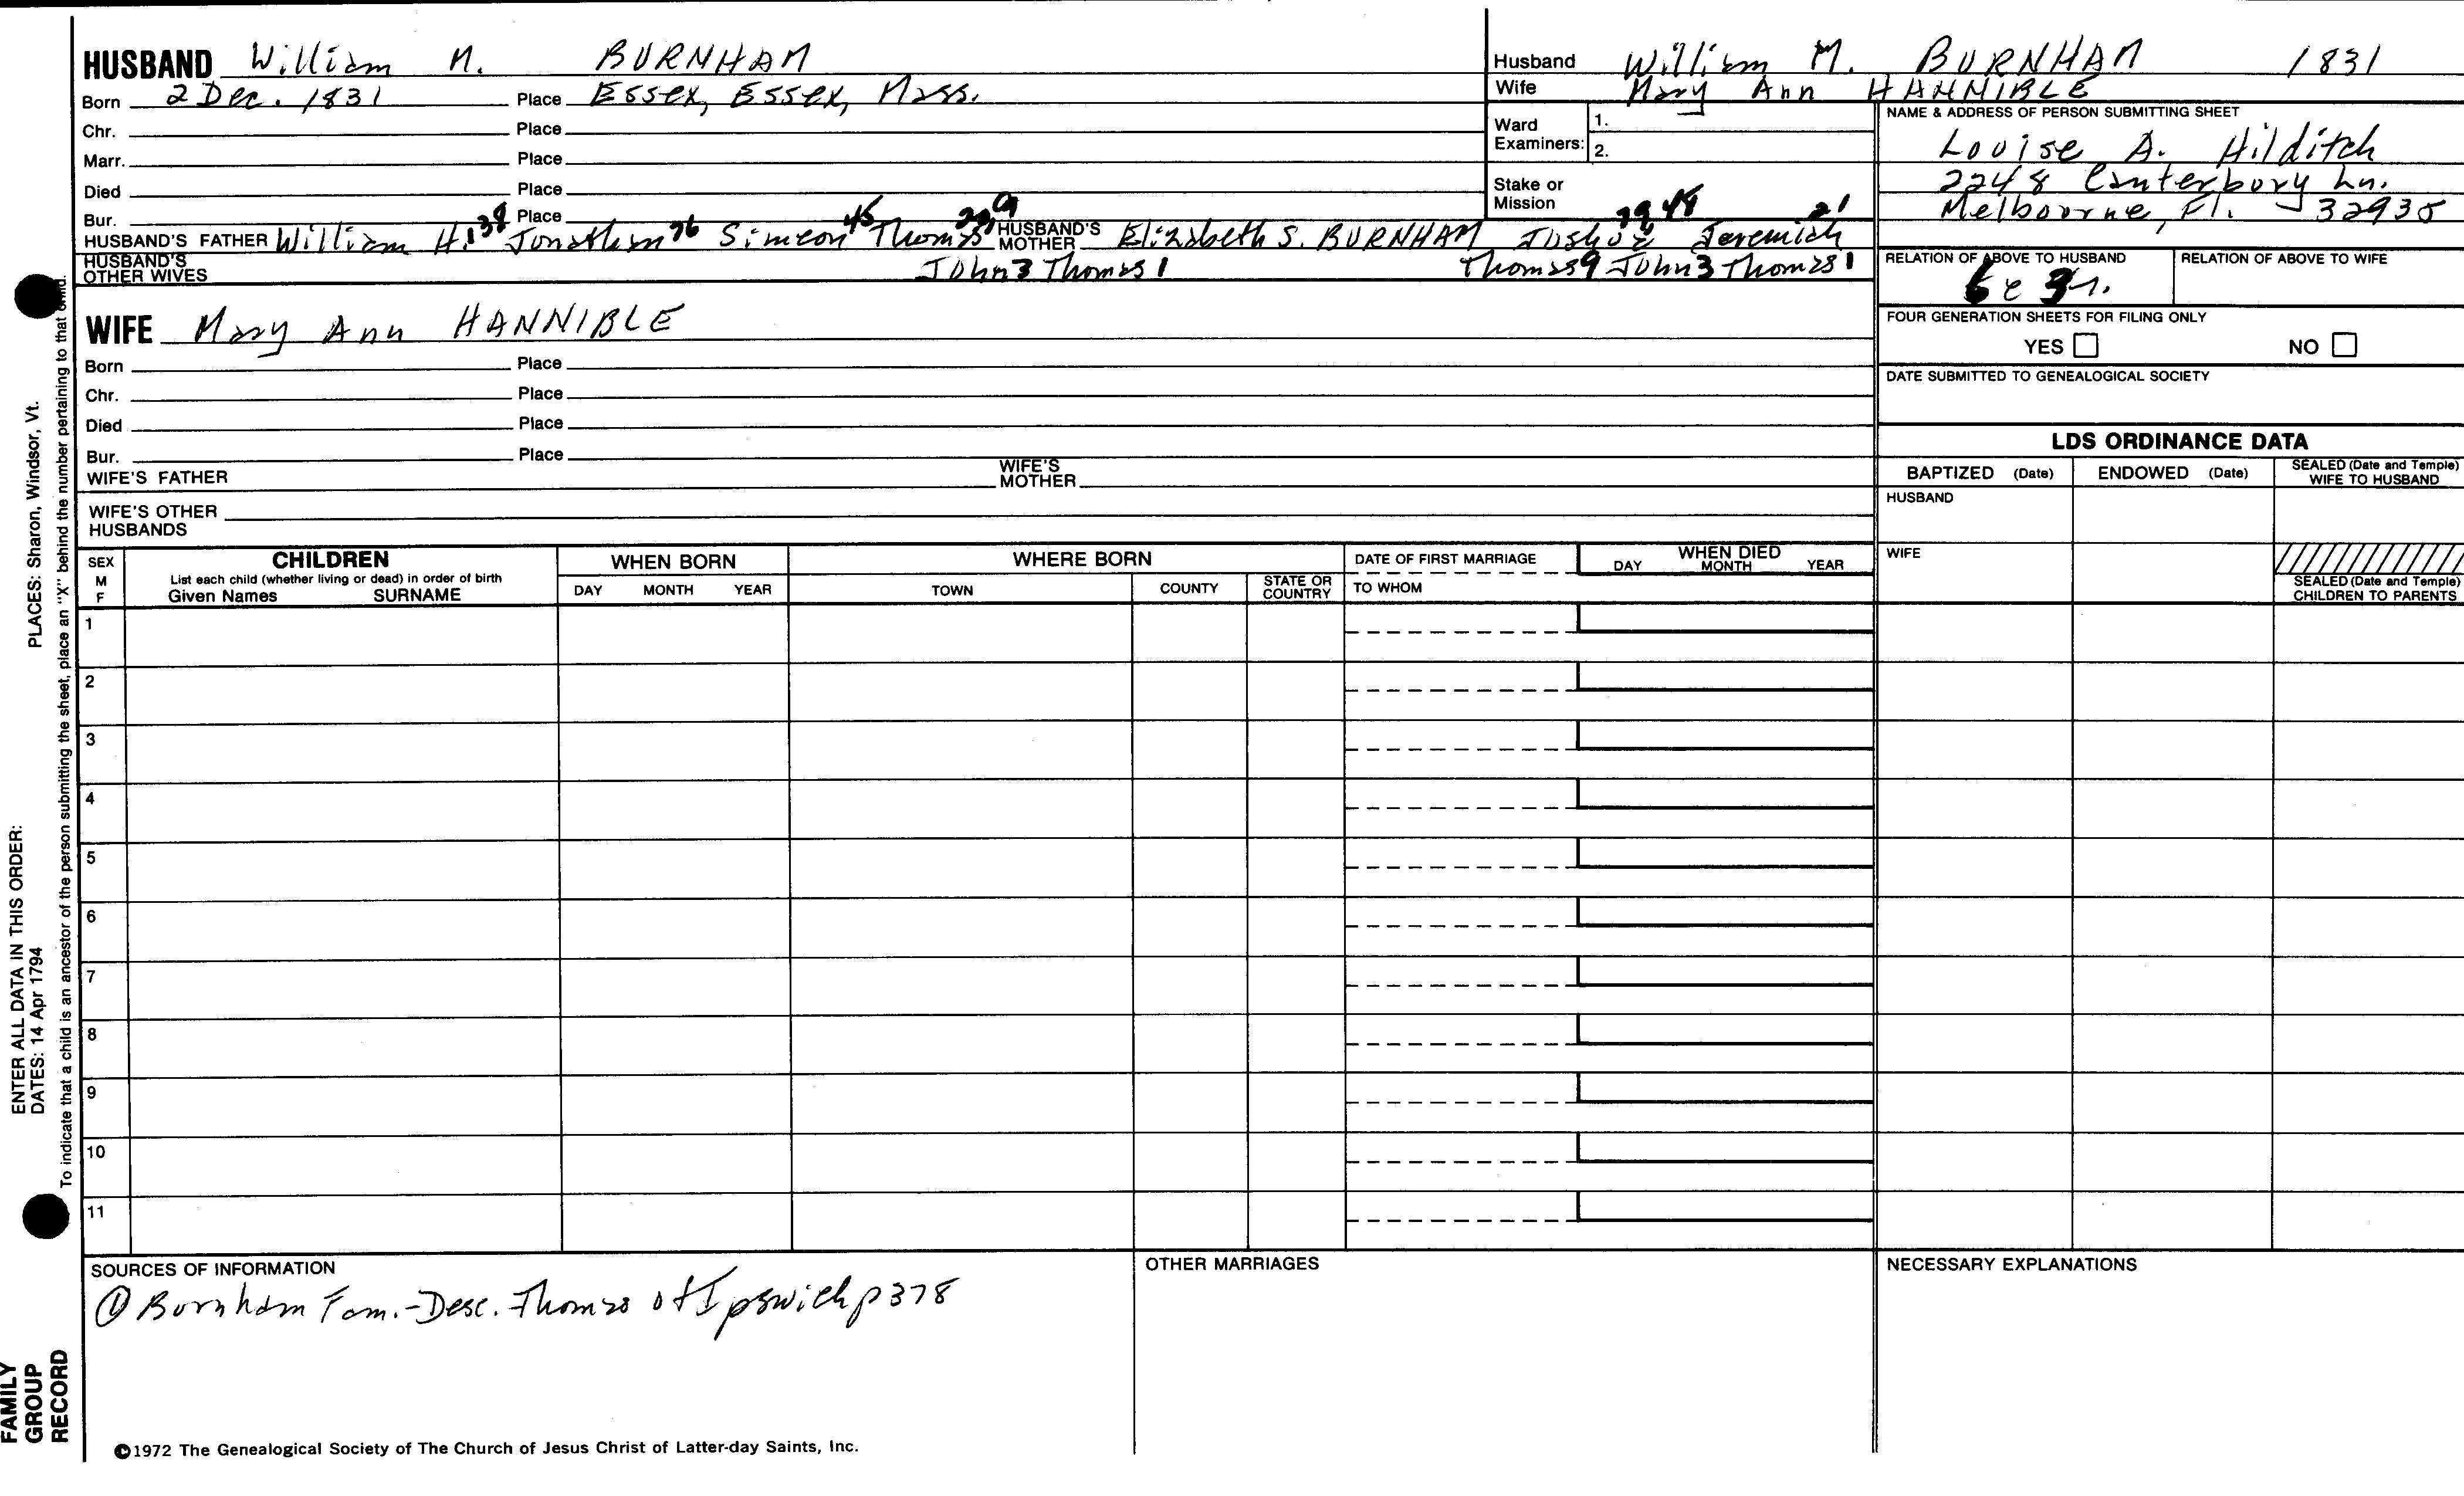 HUSBAND William M. BURNHAM
Born 2 Dec. 1831 Place Essex, Essex, Mass.
Chr. Place
Marr. Place
Died Place
Bur. Place
HUSBAND'S FATHER William H. 138 Jonathan 76 Simeon 45 Thomas HUSBAND'S MOTHER Elizabeth S. BURNHAM Joshua 48 Jeremiah 21
HUSBAND'S OTHER WIVES John 3 Thomas 1 Thomas 9 John 3 Thomas 1
Husband William M. BURNHAM 1831
Wife Mary Ann HANNIBLE
Ward Examiners: 1.
2.
Stake or Mission
NAME & ADDRESS OF PERSON SUBMITTING SHEET
Louise A. Hilditch
2248 Canterbury Ln.
Melbourne, Fl. 32935
RELATION OF ABOVE TO HUSBAND RELATION OF ABOVE TO WIFE
6 c 3 r.
FOUR GENERATION SHEETS FOR FILING ONLY
YES NO
DATE SUBMITTED TO GENEALOGICAL SOCIETY
WIFE Mary Ann HANNIBLE
Born Place
Chr. Place
Died Place
Bur. Place
WIFE'S FATHER WIFE'S MOTHER
WIFE'S OTHER HUSBANDS
LDS ORDINANCE DATA
BAPTIZED (Date) ENDOWED (Date) SEALED (Date and Temple) WIFE TO HUSBAND
HUSBAND
WIFE
SEALED (Date and Temple) CHILDREN TO PARENTS
SEX M F
CHILDREN
List each child (whether living or dead) in order of birth
Given Names SURNAME
WHEN BORN
DAY MONTH YEAR
WHERE BORN
TOWN COUNTY STATE OR COUNTRY
DATE OF FIRST MARRIAGE
TO WHOM
WHEN DIED
DAY MONTH YEAR
1
2
3
4
5
6
7
8
9
10
11
SOURCES OF INFORMATION
① Burnham Fam.-Desc. Thomas of Ipswich p378
OTHER MARRIAGES
NECESSARY EXPLANATIONS
©1972 The Genealogical Society of The Church of Jesus Christ of Latter-day Saints, Inc.
FAMILY GROUP RECORD
ENTER ALL DATA IN THIS ORDER:
DATES: 14 Apr 1794 PLACES: Sharon, Windsor, Vt.
To indicate that a child is an ancestor of the person submitting the sheet, place an "X" behind the number pertaining to that child.